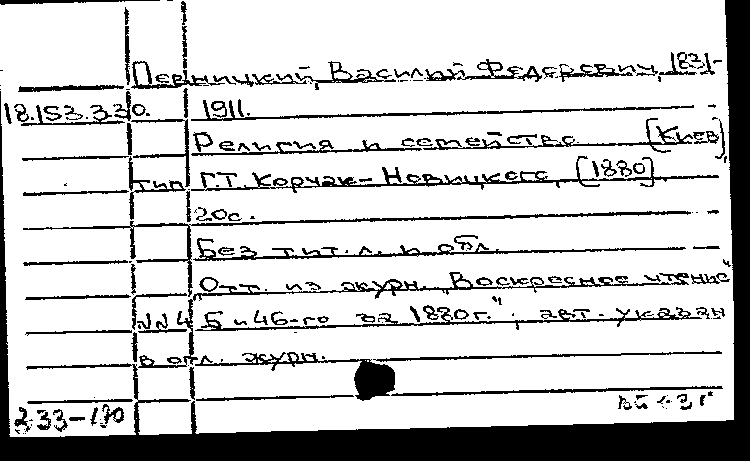 Певницкий, Василий Федорович, 1831-
18.153.330. 1911.
Религия и семейство [Киев]
тип Г.Т. Корчак-Новицкого, [1880].
20с.
Без тит. л. и обл.
"Отт. из журн. "Воскресное чтение"
NN 45 и 46-го за 1880г."; авт. указан
в огл. журн.
333-190